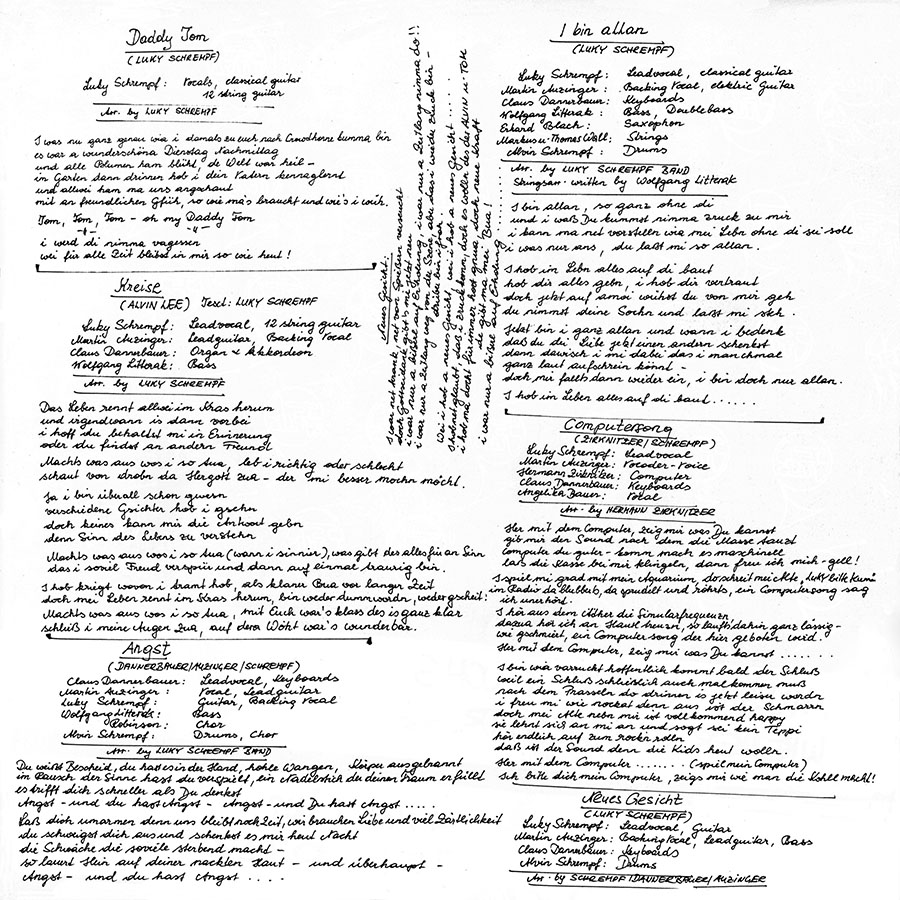 Daddy Tom
(LUKY SCHREMPF)
Luky Schrempf: Vocals, classical guitar
12 string guitar
Arr. by LUKY SCHREMPF
I was nu ganz genau wia i damals zu euch nach Crowthorne kumma bin
es war a wunderschöna Dienstag Nachmittag
und alle Blumen ham blüht, de Welt war heil -
in Garten dann drinnen hob i dein Vatern kennaglernt
und allwei ham ma uns angschaut
mit an freundlichen Gfüh, so wie ma's braucht und wie's i wüh.
Tom, Tom, Tom - oh my Daddy Tom
-"- -"-
i werd di nimma vagessen
wei für alle Zeit bleibst in mir so wie heut!
Kreise
(ALVIN LEE) Text: LUKY SCHREMPF
Luky Schrempf: Leadvocal, 12 string guitar
Martin Auzinger: Leadguitar, Backing Vocal
Claus Dannerbauer: Organ + Akkordeon
Wolfgang Litterak: Bass
Arr. by LUKY SCHREMPF
Das Leben rennt allwei im Kras herum
und irgendwann is dann vorbei
i hoff du behaltst mi in Erinnerung
oder du findst an andern Freund
Machts was aus wos i so tua, leb i richtig oder schlecht
schaut von drobn da Hergott zua - der mi besser mochn möcht.
Ja i bin überall schon gwesn
verschidene Gsichter hob i gsehn
doch keiner kann mir die Antwort gebn
denn Sinn des Lebns zu verstehn
Machts was aus wos i so tua (wann i sinnier), was gibt des alles für an Sinn
das i soviel Freud verspür und dann auf einmal traurig bin.
I hob kriagt wovon i tramt hob, als klaner Bua vor langer Zeit
doch mei Leben rennt im Kras herum, bin weder dumm wordn, weder gscheit!
Machts was aus wos i so tua, mit Euch war's klass des is ganz klar
schließ i meine Augen zua, auf dera Wöht war's wunderbar.
Angst
(DANNERBAUER/AUZINGER/SCHREMPF)
Claus Dannerbauer: Leadvocal, Keyboards
Martin Auzinger: Vocal, Leadguitar
Luky Schrempf: Guitar, Backing Vocal
Wolfgang Litterak: Bass
Robinson: Chor
Alvin Schrempf: Drums, Chor
Arr. by LUKY SCHREMPF BAND
Du weißt Bescheid, du hast es in der Hand, hohle Wangen, Körper ausgebrannt
im Rausch der Sinne hast du verspielt, ein Nadelstich der deinen Traum erfüllt
es trifft dich schneller als Du denkst
Angst - und du hast Angst - Angst - und Du hast Angst ....
Laß dich umarmen denn uns bleibt noch Zeit, wir brauchen Liebe und viel Zärtlichkeit
du schweigst dich aus und schenkst es mir heut Nacht
die Schwäche die soviele sterbend macht -
so lauert Stein auf deiner nackten Haut - und überhaupt -
Angst - und du hast Angst ....
Neues Gesicht:
I war net krank, net von Spritzen verseucht
doch Gottseidank gibt's mi jetzt neu
i war nur a bißerl auf Erholung, i war nur a Zeitlang nimma do!!
i war nur a Zeitlang weg von der Szene, aba das i wieder zruck bin -
drüber bin i froh.
Wei i hob a neues Gsicht, wei i hob a neues Gsicht ....
I hob net glaubt, daß i zruck komm, doch es wollten der des ALVIN u. TOM
i hob ma docht für immer host gnua, doch neue Kraft
die gibt ma mei Bua!
i war nur a bißerl auf Erholung ......
I bin allan
(LUKY SCHREMPF)
Luky Schrempf: Leadvocal, classical guitar
Martin Auzinger: Backing Vocal, elektric Guitar
Claus Dannerbaur: Keyboards
Wolfgang Litterak: Bass, Doublebass
Erhard Black: Saxophon
Markus u. Thomas Wall: Strings
Alvin Schrempf: Drums
Arr. by LUKY SCHREMPF BAND
Stringsarr. written by Wolfgang Litterak
I bin allan, so ganz ohne di
und i waß Du kummst nimma zruck zu mir
i kann ma net vorstelln wia mei Lebn ohne di sei soll
i was nur ans, du laßt mi so allan.
I hob im Lebn alles auf di baut
hob dir alles gebn, i hob dir vertraut
doch jetzt auf amoi willst du von mir geh
du nimmst deine Sochn und laßt mi steh.
Jetzt bin i ganz allan und wann i bedenk
daß du die Liebe jetzt einen andern schenkst
dann dawisch i mi dabei das i manchmal
ganz laut aufschrein könnt -
doch mir fallts dann wieder ein, i bin doch nur allan.
I hob im Leben alles auf di baut ......
Computersong
(ZIRKNITZER/SCHREMPF)
Luky Schrempf: Leadvocal
Martin Auzinger: Vocoder-Voice
Hermann Zirknitzer: Computer
Claus Dannerbauer: Keyboards
Angelika Bauer: Vocal
Arr. by HERMANN ZIRKNITZER
Her mit dem Computer, zeig mir was Du kannst
gib mir den Sound nach dem die Masse tanzt
Computer du guter - komm mach es maschinell
laß die Kasse bei mir klingeln, dann freu ich mich - gell!
I spiel mi grad mit mein Aquarium, do schreit mei Alte, Luky bitt kumm
im Radio da blubbats, da sprudelt und röhrts, ein Computersong sag
ich unerhörd.
I hör aus dem Äther die Simularfrequenzn
dazua hör ich an Haufn heuzn, so laufts dahin ganz lässig -
wie gschmiert, ein Computersong der hier geboten wird.
Her mit dem Computer, zeig mir was Du kannst .......
I bin wia varruckt hoffentlich kommt bald der Schluß
weil ein Schluß schließlich auch mal kommen muß
nach dem Prasseln do drinnen is jetzt leise wordn
i freu mi wie nockat denn aus ist der Schmarrn
doch mei Alte nebn mir ist vollkommend happy
sie lehnt sich an mi an und sagt sei kein Teppi
hör endlich auf zum rock'n rolln
daß is der Sound denn die Kids heut wolln.
Her mit dem Computer ....... (spiel mein Computer)
Ich bitte dich mein Computer, zeigs mir wie man die Kohle macht!
Neues Gesicht
(LUKY SCHREMPF)
Luky Schrempf: Leadvocal, Guitar
Martin Auzinger: Backing Vocal, Leadguitar, Bass
Claus Dannerbauer: Keyboards
Alvin Schrempf: Drums
Arr. by SCHREMPF/DANNERBAUER/AUZINGER